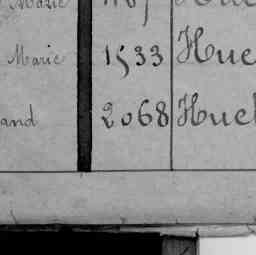 Marie
Marie 1533 Hue
and 2068 Huel